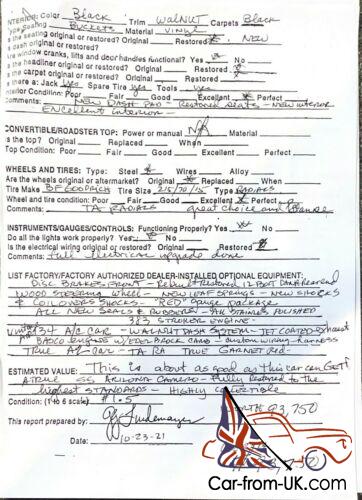 INTERIOR: Color Black Trim WALNUT Carpets Black
Type Seating BUCKETS Material VINYL
Is the seating original or restored? Original Restored NEW
Is dash original or restored?
Are window cranks, lifts and door handles functional? Yes No
Is the headliner original or restored? Original Restored
Is the carpet original or restored? Original Restored
Is there a: Jack yes Spare Tire yes Tools yes
Interior Condition: Poor Fair Good Excellent Perfect
Comments: NEW DASH PAD - Restored Seats - New interior
Excellent interior -
CONVERTIBLE/ROADSTER TOP: Power or manual N/A Material
Is the top? Original Replaced When
Top Condition: Poor Fair Good Excellent Perfect
WHEELS AND TIRES: Type: Steel Wires Alloy
Are the wheels original or aftermarket? Original Replaced When
Tire Make BF GOODRICH Tire Size 215/70/15 Type RADIALS
Wheel and tire condition: Poor Fair Good Excellent Perfect
Comments: TA RADIALS great choice and
INSTRUMENTS/GAUGES/CONTROLS: Functioning Properly? Yes No
Do all the lights work properly? Yes No
Is the electrical wiring original or restored? Original Restored
Comments: full electrical upgrade done
LIST FACTORY/FACTORY AUTHORIZED DEALER-INSTALLED OPTIONAL EQUIPMENT:
DISC BRAKES FRONT - Rebuilt Restored 12 BOLT Rear end
WOOD STEERING Wheel - NEW LEAF SPRINGS - NEW SHOCKS
& COILOVERS SHOCKS - "RED" gauge package
ALL NEW SEALS & RUBBERS - All Stainless POLISHED
383 STROKER ENGINE -
A/C CAR - WALNUT DASH SYSTEM - JET COATED Exhaust
w/ EDELBROCK CAMS - custom wiring harness
TRUE AZ-Car - TRUE GARNET Red -
ESTIMATED VALUE: This is about as good as this car can GET!
A TRUE SS, ARIZONA CAMARO - Fully Restored to the
highest STANDARDS - HIGHLY
Condition: (1 to 6 scale) #1.5
93,750
This report prepared by:
Date: 10-23-21
Car-from-UK.com